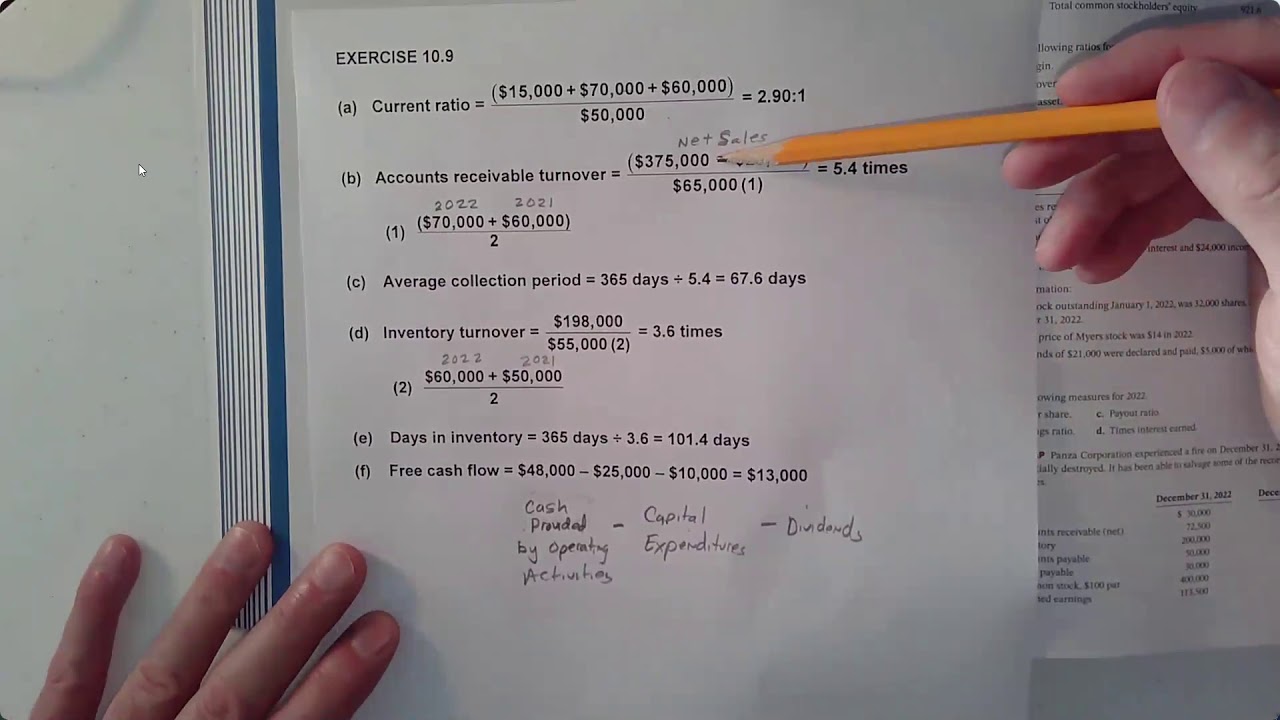 Total common stockholders' equity 921.6
EXERCISE 10.9
(a) Current ratio = ($15,000 + $70,000 + $60,000) / $50,000 = 2.90:1
Net Sales
(b) Accounts receivable turnover = ($375,000 – / $65,000 (1) = 5.4 times
2022 2021
(1) ($70,000 + $60,000) / 2
(c) Average collection period = 365 days ÷ 5.4 = 67.6 days
(d) Inventory turnover = $198,000 / $55,000 (2) = 3.6 times
2022 2021
(2) $60,000 + $50,000 / 2
(e) Days in inventory = 365 days ÷ 3.6 = 101.4 days
(f) Free cash flow = $48,000 – $25,000 – $10,000 = $13,000
Cash
Provided – Capital – Dividends
by Operating Expenditures
Activities
llowing ratios
gin.
over
asset.
interest and $24,000
mation:
ock outstanding January 1, 2022, was 32,000 shares.
r 31, 2022.
price of Myers stock was $14 in 2022.
nds of $21,000 were declared and paid, $5,000 of
owing measures for 2022.
r share. c. Payout ratio.
gs ratio. d. Times interest earned.
P Panza Corporation experienced a fire on December 31,
ially destroyed. It has been able to salvage some of the
December 31, 2022
$ 30,000
nts receivable (net) 72,500
tory 200,000
nts payable 50,000
payable 30,000
on stock, $100 par 400,000
ed earnings 113,500